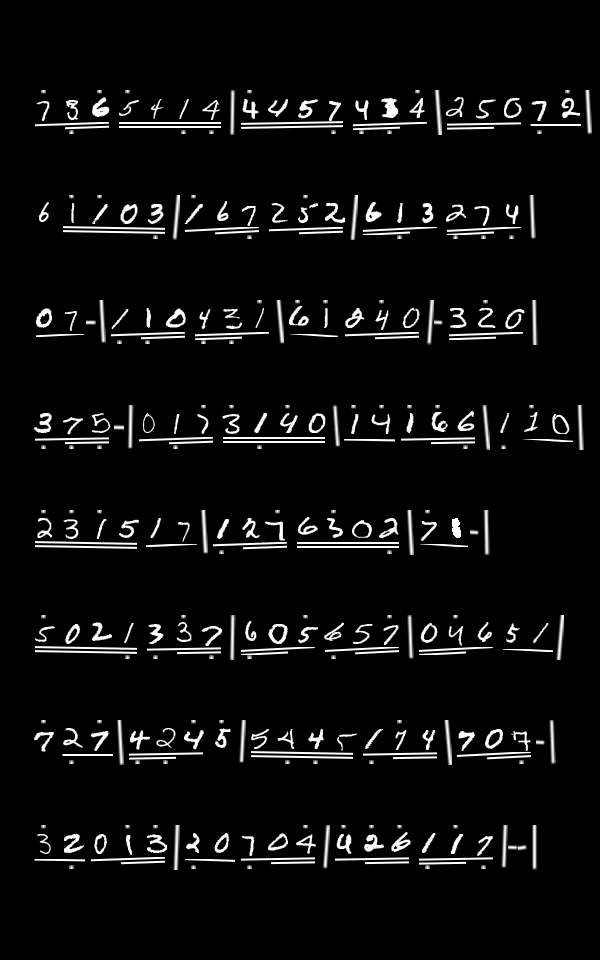 7 3 6 5 4 1 4 | 4 4 5 7 4 3 4 | 2 5 0 7 2 |
6 1 1 0 3 | 1 6 7 2 5 2 | 6 1 3 2 7 4 |
0 7 - | 1 1 0 4 3 1 | 6 1 2 4 0 | - 3 2 0 |
3 7 5 - | 0 1 7 3 1 4 0 | 1 4 1 6 6 | 1 1 0 |
2 3 1 5 1 7 | 1 2 7 6 3 0 2 | 7 1 - |
5 0 2 1 3 3 7 | 6 0 5 6 5 7 | 0 4 6 5 1 |
7 2 7 | 4 2 4 5 | 5 4 4 5 1 7 4 | 7 0 7 - |
3 2 0 1 3 | 2 0 7 0 4 | 4 2 6 1 1 7 | - - |